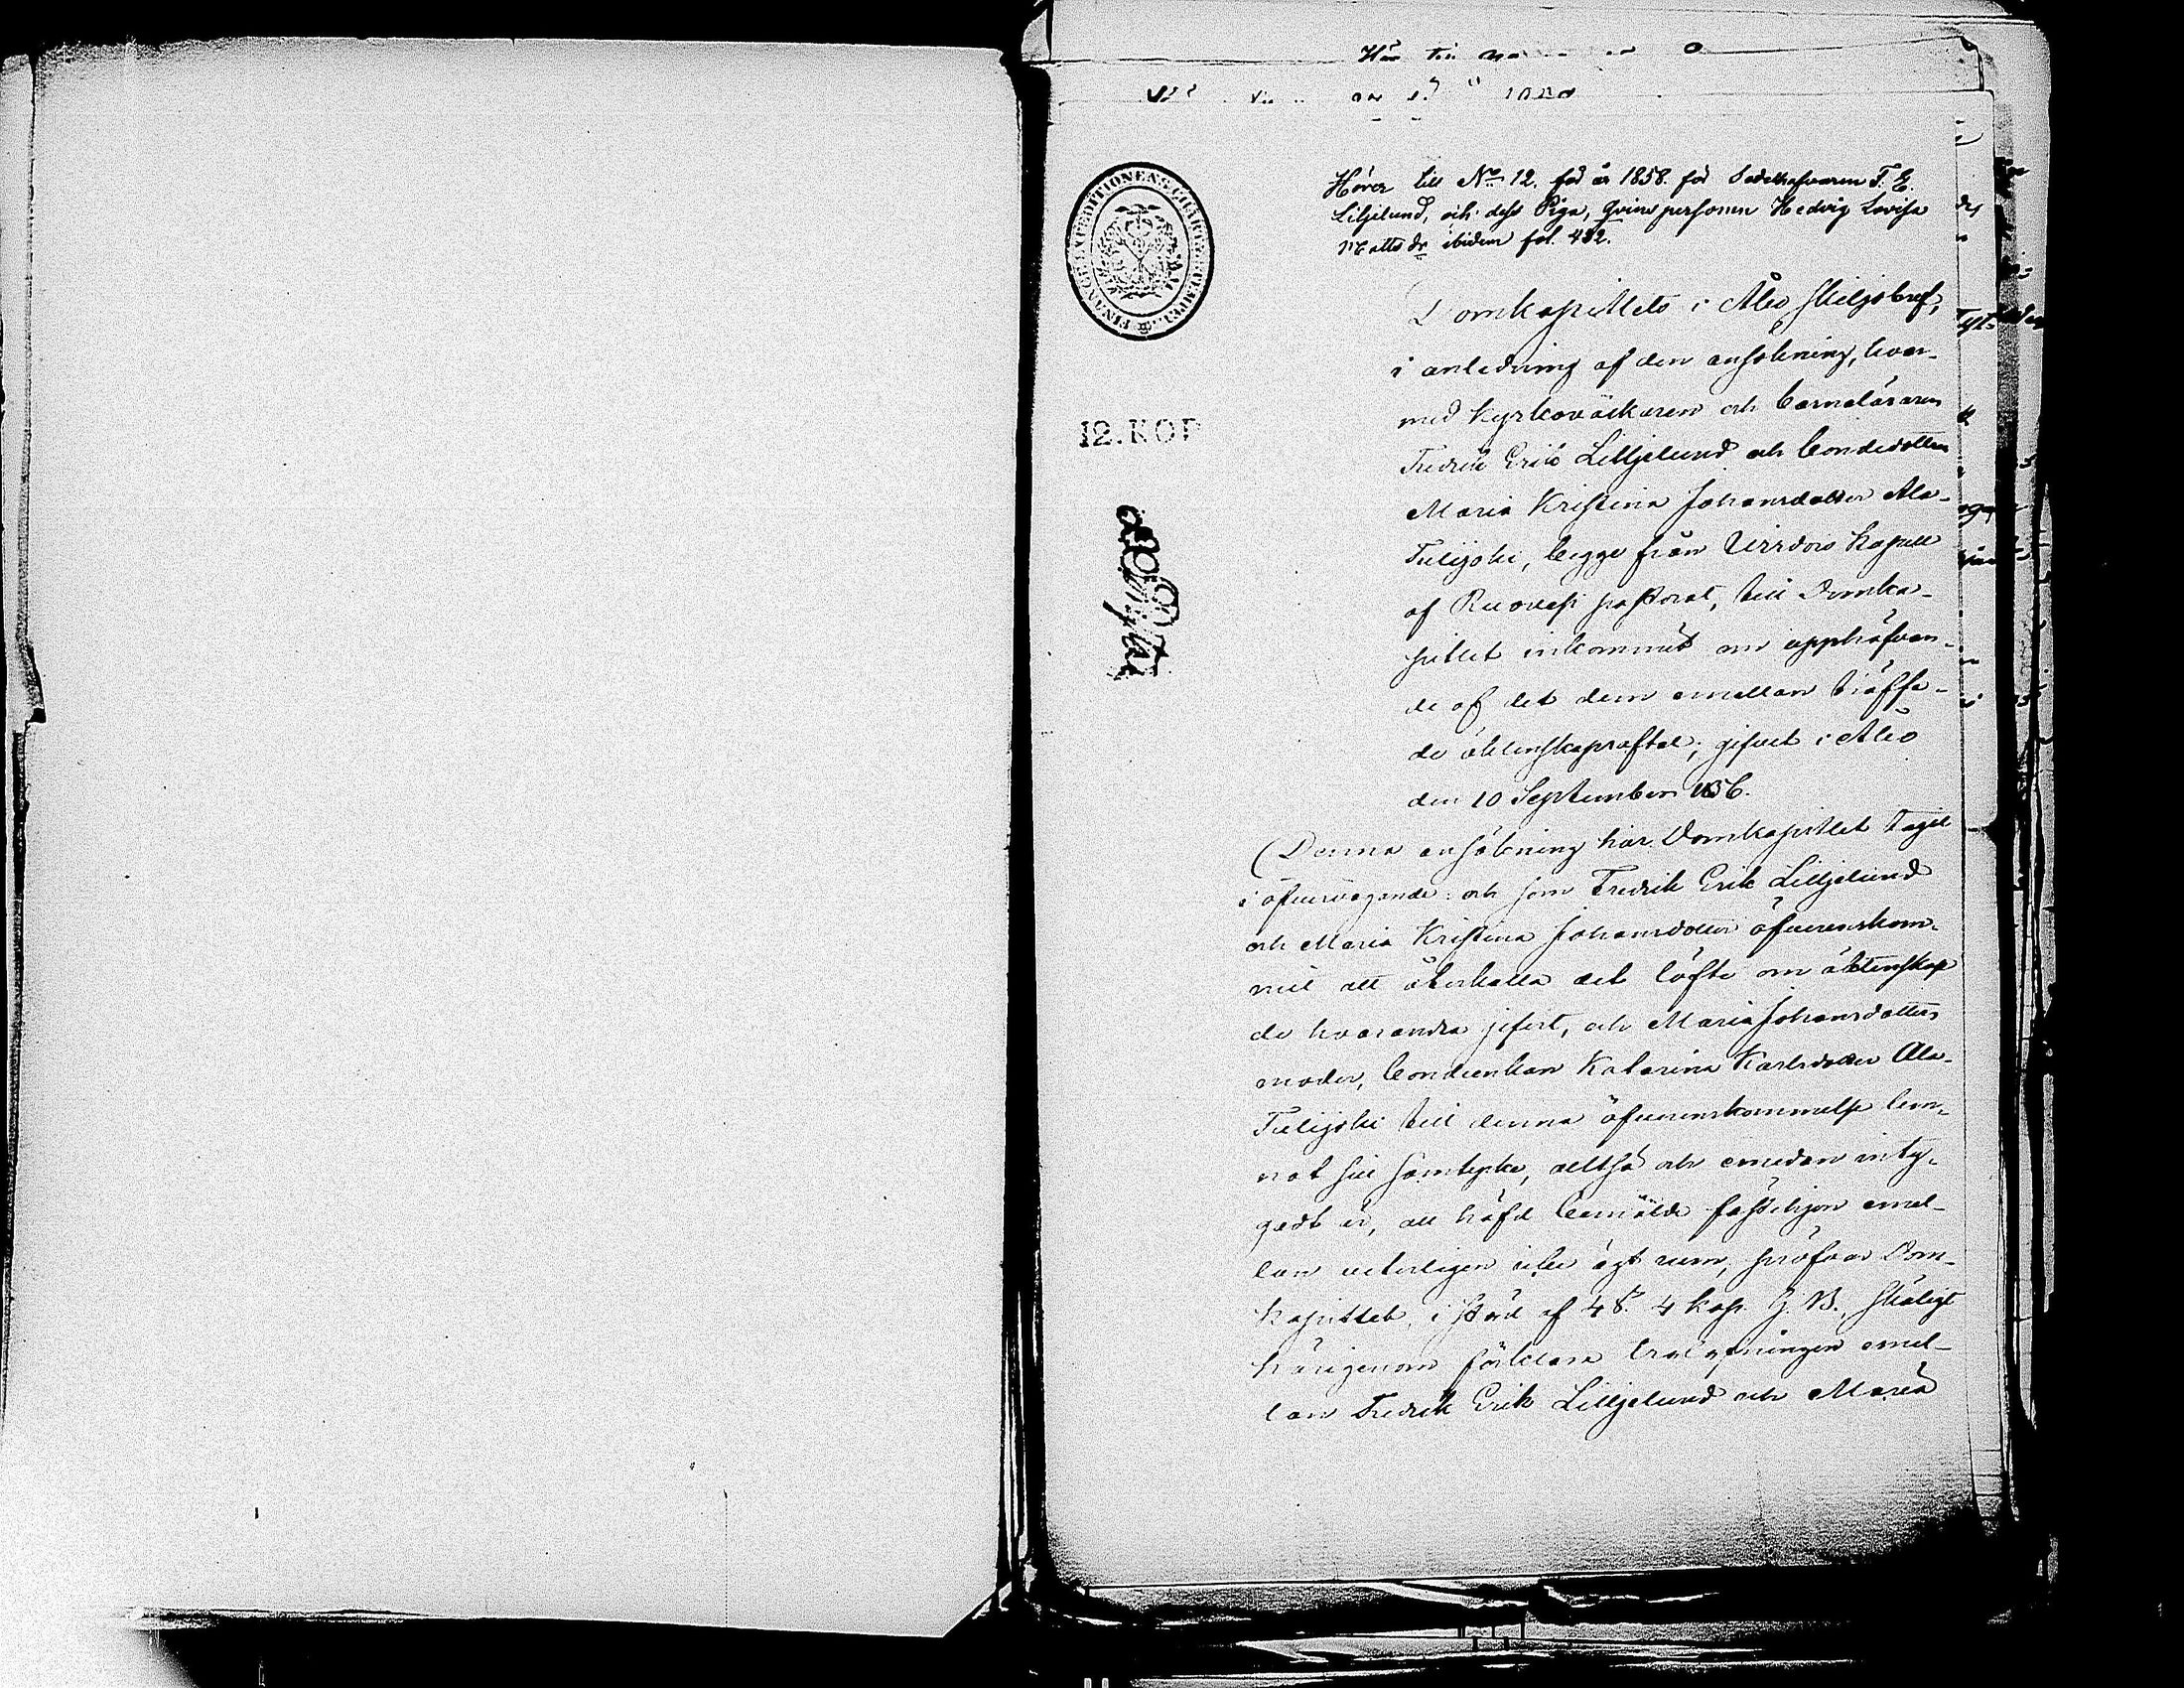 Hörer till No 12. för år 1858. för T. E.
Liljelund, och dess Piga, Qvinspersonen Hedvig Lovisa
Mattsdr ibidem fol. 432.
FINANCE EXPEDITIONENS CHARTÆ STEMPEL
12. KOP
Domkapitlets i Åbo skiljobref,
i anledning af den ansökning, hvar-
med kyrkoväktaren och barnaläraren
Fredrik Erik Lilljelund och bondedottren
Maria Kristina Johansdotter Ala-
Tulijoki, begge från Virdois kapell
af Ruovesi pastorat, till Domka-
pitlet inkommit om upphäfvan-
de af det dem emellan träffa-
de äktenskapsaftal; gifvet i Åbo
den 10 September 1856.
Denna ansökning har Domkapitlet tagit
i öfvervägande: och som Fredrik Erik Lilljelund
och Maria Kristina Johansdotter öfverenskom-
mit att återkalla det löfte om äktenskap
de hvarandra gifvit, och Maria Johansdotters
moder, bondeenkan Katarina Karlsdotter Ala-
Tulijoki till denna öfverenskommelse lem-
nat sitt samtycke, alltså och emedan inty-
gadt är, att häfd bemälde fästehjon emel-
lan veterligen icke ägt rum, pröfvar Dom-
kapitlet, i stöd af 4 §. 4 kap. G. B., skäligt
härigenom förklara trolofningen emel-
lan Fredrik Erik Lilljelund och Maria